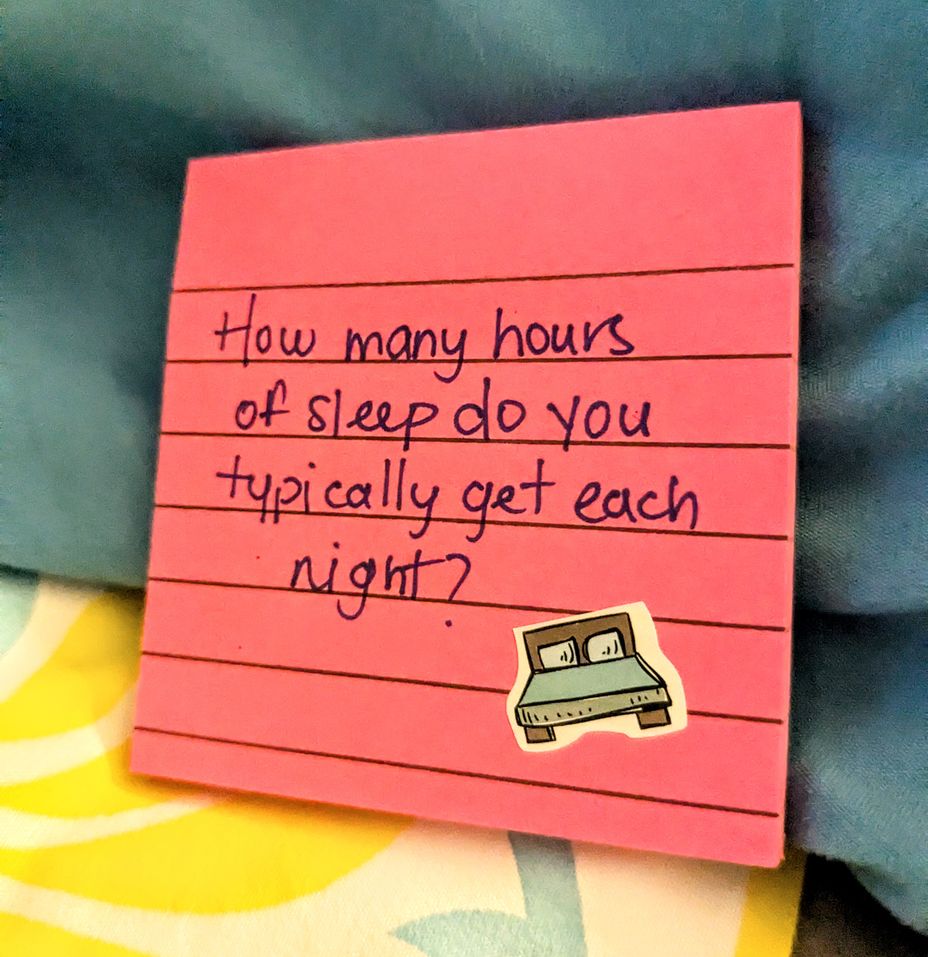 How many hours
of sleep do you
typically get each
night?